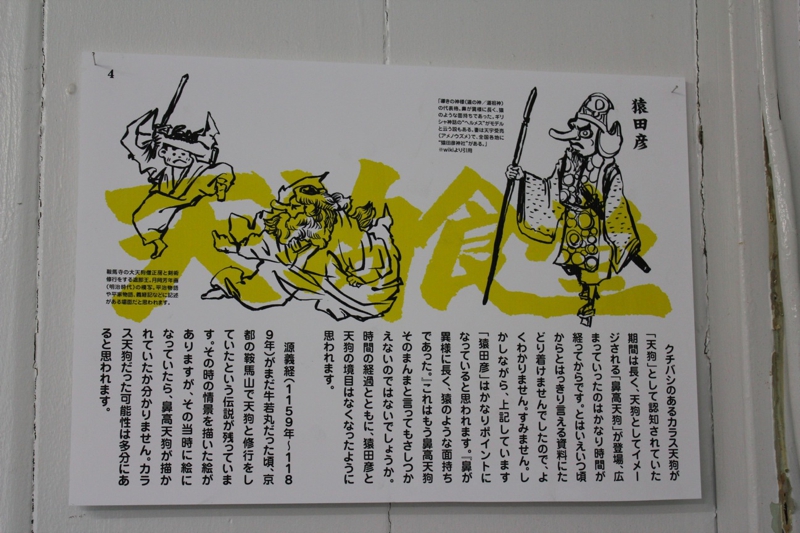 4
天狗食堂
猿田彦
「導きの神様(道の神/道祖神)
の代表格。鼻が異様に長く、猿
のような面持ちであった。ギリ
シャ神話の“ヘルメス”がモデル
と云う説もある。妻は天宇受売
(アメノウズメ)で、全国各地に
“猿田彦神社”がある。」
※wikiより引用
鞍馬寺の大天狗僧正坊と剣術
修行をする遮那王。月岡芳年画
(明治時代)の模写。平治物語
や平家物語、義経記などに記述
がある場面だと思われます。
クチバシのあるカラス天狗が
「天狗」として認知されていた
期間は長く、天狗としてイメー
ジされる「鼻高天狗」が登場、広
まっていったのはかなり時間が
経ってからです。とはいえいつ頃
からとはっきり言える資料にた
どり着けませんでしたので、よ
くわかりません。すみません。し
かしながら、上記しています
「猿田彦」はかなりポイントに
なっていると思われます。『鼻が
異様に長く、猿のような面持ち
であった。』これはもう鼻高天狗
そのまんまと言ってもさしつか
えないのではないでしょうか。
時間の経過とともに、猿田彦と
天狗の境目はなくなったように
思われます。
源義経(1159年~118
9年)がまだ牛若丸だった頃、京
都の鞍馬山で天狗と修行をし
ていたという伝説が残っていま
す。その時の情景を描いた絵が
ありますが、その当時に絵に
なっていたら、鼻高天狗が描か
れていたか分かりません。カラ
ス天狗だった可能性は多分にあ
ると思われます。